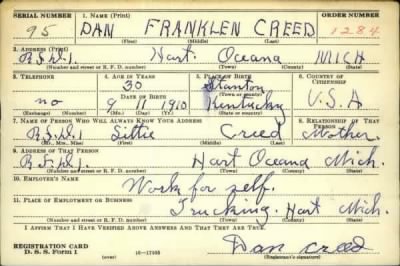 SERIAL NUMBER 1. NAME (Print) ORDER NUMBER
95 DAN FRANKLEN CREED 1284
(First) (Middle) (Last)
2. ADDRESS (Print)
R.F.D.1. Hart. Oceana MICH
(Number and street or R. F. D. number) (Town) (County) (State)
3. TELEPHONE 4. AGE IN YEARS 5. PLACE OF BIRTH 6. COUNTRY OF CITIZENSHIP
30 Stanton
DATE OF BIRTH (Town or county)
no 9 1 1910 Kentucky U.S.A
(Exchange) (Number) (Mo.) (Day) (Yr.) (State or country)
7. NAME OF PERSON WHO WILL ALWAYS KNOW YOUR ADDRESS 8. RELATIONSHIP OF THAT PERSON
R.F.D.1 Creed Mother.
(Mr., Mrs., Miss) (First) (Middle) (Last)
9. ADDRESS OF THAT PERSON
R.F.D.1. Hart Oceana Mich.
(Number and street or R. F. D. number) (Town) (County) (State)
10. EMPLOYER'S NAME
Work for self.
11. PLACE OF EMPLOYMENT OR BUSINESS
Trucking. Hart Mich.
(Number and street or R. F. D. number) (Town) (County) (State)
I AFFIRM THAT I HAVE VERIFIED ABOVE ANSWERS AND THAT THEY ARE TRUE.
REGISTRATION CARD
D. S. S. Form 1 16-17105 Dan Creed
(Registrant's signature)